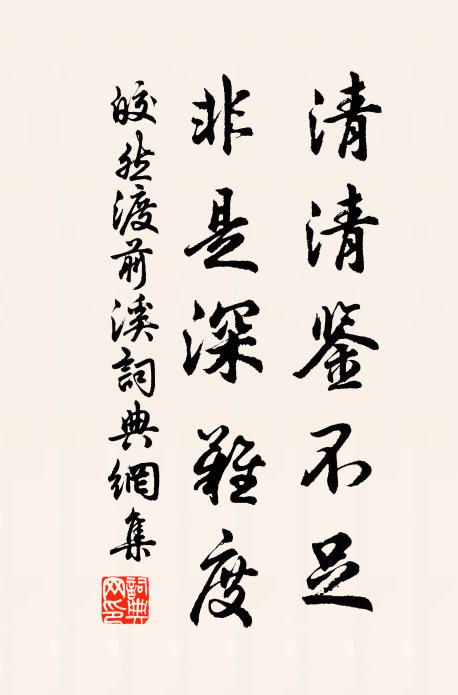 清清鉴不足
非是深難度
皎然渡前溪詞典網集
詞典网印